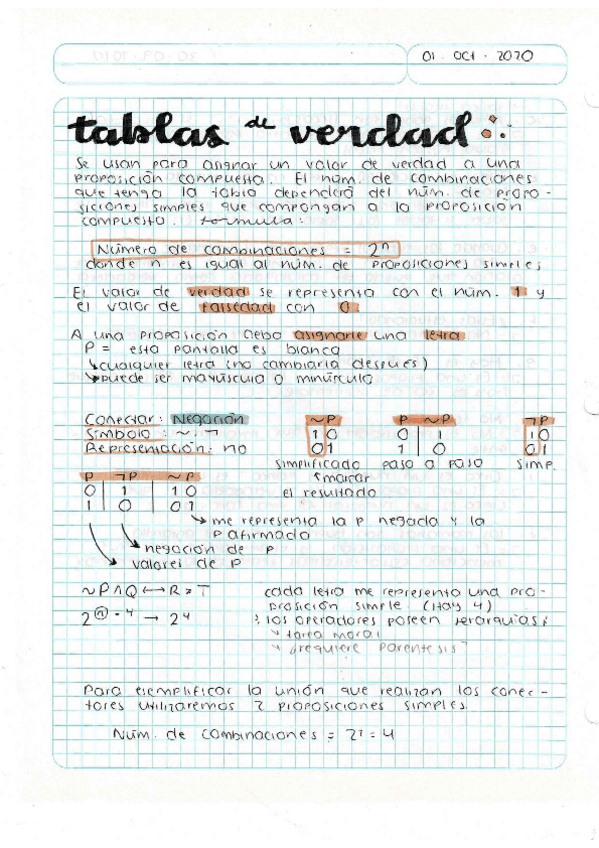 01 · Oct · 2020
tablas de verdad
Se usan para asignar un valor de verdad a una
proposición compuesta. El núm. de combinaciones
que tenga la tabla dependerá del núm. de propo-
siciones simples que compongan a la proposición
compuesta. formula:
Número de combinaciones = 2ⁿ
donde n es igual al núm. de proposiciones simples
El valor de verdad se representa con el núm. 1 y
el valor de falsedad con 0
A una proposición debo asignarle una letra
P = esta pantalla es blanca
↳ cualquier letra (no cambiarla después)
↳ puede ser mayúscula o minúscula
Conectar: Negación
Símbolo: ~, ¬
Representación: no
~P
1 0
0 1
simplificado
P ~P
0 1
1 0
paso a paso
¬P
1 0
0 1
simp.
P ¬P ~P
0 1 1 0
1 0 0 1
↑ marcar
el resultado
→ me representa la P negada y la
P afirmada
negación de P
valores de P
~P∧Q ↔ R ... T
2ⁿ · 4 → 2⁴
cada letra me representa una pro-
posición simple (Hay 4)
los operadores poseen jerarquías
tarea moral
¿requiere paréntesis?
Para ejemplificar la unión que realizan los conec-
tores utilizaremos 2 proposiciones simples
Núm. de combinaciones = 2² = 4